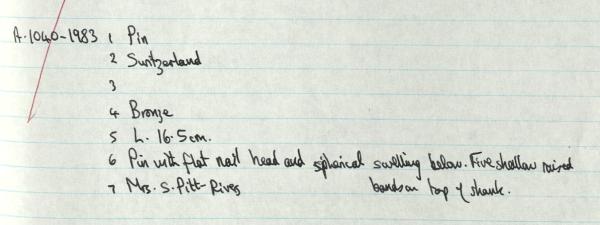 A.1040-1983 1 Pin
2 Switzerland
3
4 Bronze
5 L. 16.5cm.
6 Pin with flat nail head and spherical swelling below. Five shallow raised
bands on top of shank.
7 Mrs. S. Pitt-Rivers